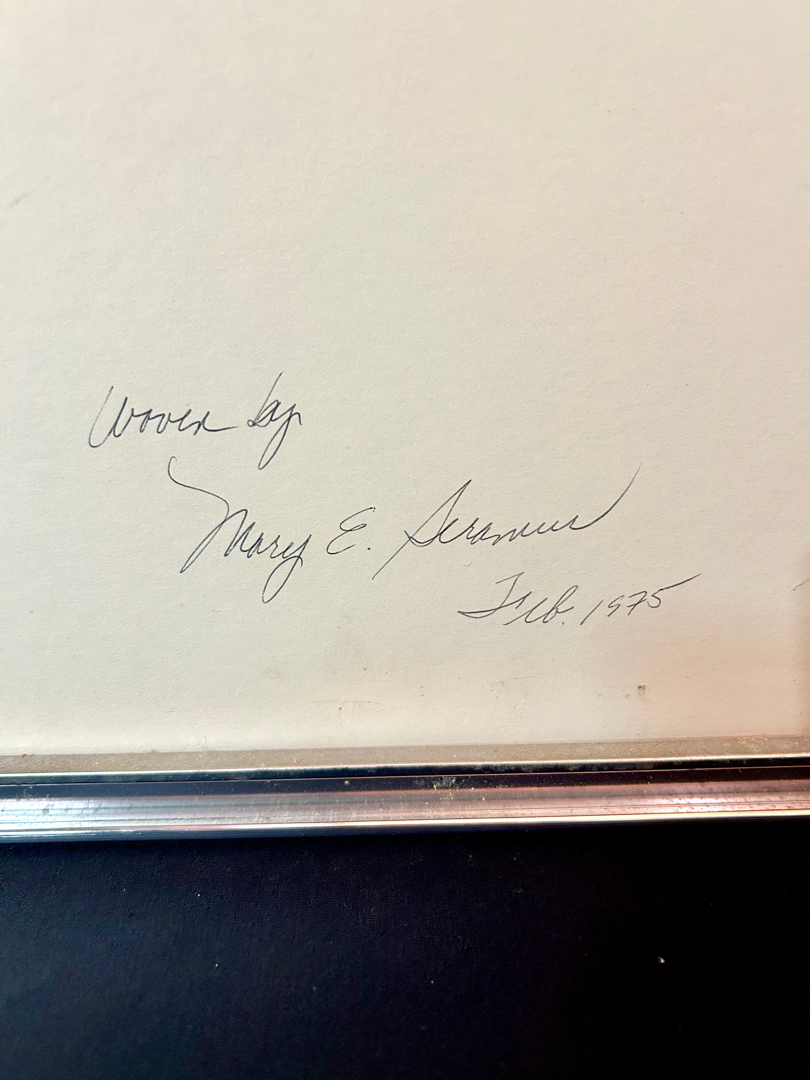 Woven by
Mary E.
Feb. 1975